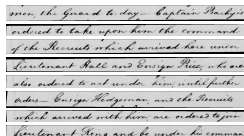 men, the Guard to day — Captain Posey is
ordered to take upon him the command
of the Recruits which arrived here under
Lieutenant Hall and Ensign Price, who are
also ordered to act under him, until further
orders — Ensign Hedgeman, and the Recruits
which arrived with him, are ordered to join
Lieutenant King and be under his command